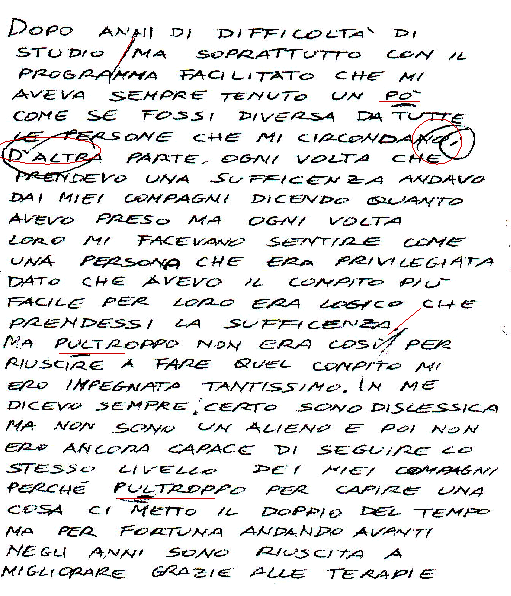 DOPO ANNI DI DIFFICOLTA' DI
STUDIO MA SOPRATTUTTO CON IL
PROGRAMMA FACILITATO CHE MI
AVEVA SEMPRE TENUTO UN PO'
COME SE FOSSI DIVERSA DA TUTTE
LE PERSONE CHE MI CIRCONDANO.
D'ALTRA PARTE, OGNI VOLTA CHE
PRENDEVO UNA SUFFICENZA ANDAVO
DAI MIEI COMPAGNI DICENDO QUANTO
AVEVO PRESO MA OGNI VOLTA
LORO MI FACEVANO SENTIRE COME
UNA PERSONA CHE ERA PRIVILEGIATA
DATO CHE AVEVO IL COMPITO PIU'
FACILE PER LORO ERA LOGICO CHE
PRENDESSI LA SUFFICENZA,
MA PULTROPPO NON ERA COSI' PER
RIUSCIRE A FARE QUEL COMPITO MI
ERO IMPEGNATA TANTISSIMO. IN ME
DICEVO SEMPRE: CERTO SONO DISLESSICA
MA NON SONO UN ALIENO E POI NON
ERO ANCORA CAPACE DI SEGUIRE LO
STESSO LIVELLO DEI MIEI COMPAGNI
PERCHÉ PULTROPPO PER CAPIRE UNA
COSA CI METTO IL DOPPIO DEL TEMPO
MA PER FORTUNA ANDANDO AVANTI
NEGLI ANNI SONO RIUSCITA A
MIGLIORARE GRAZIE ALLE TERAPIE